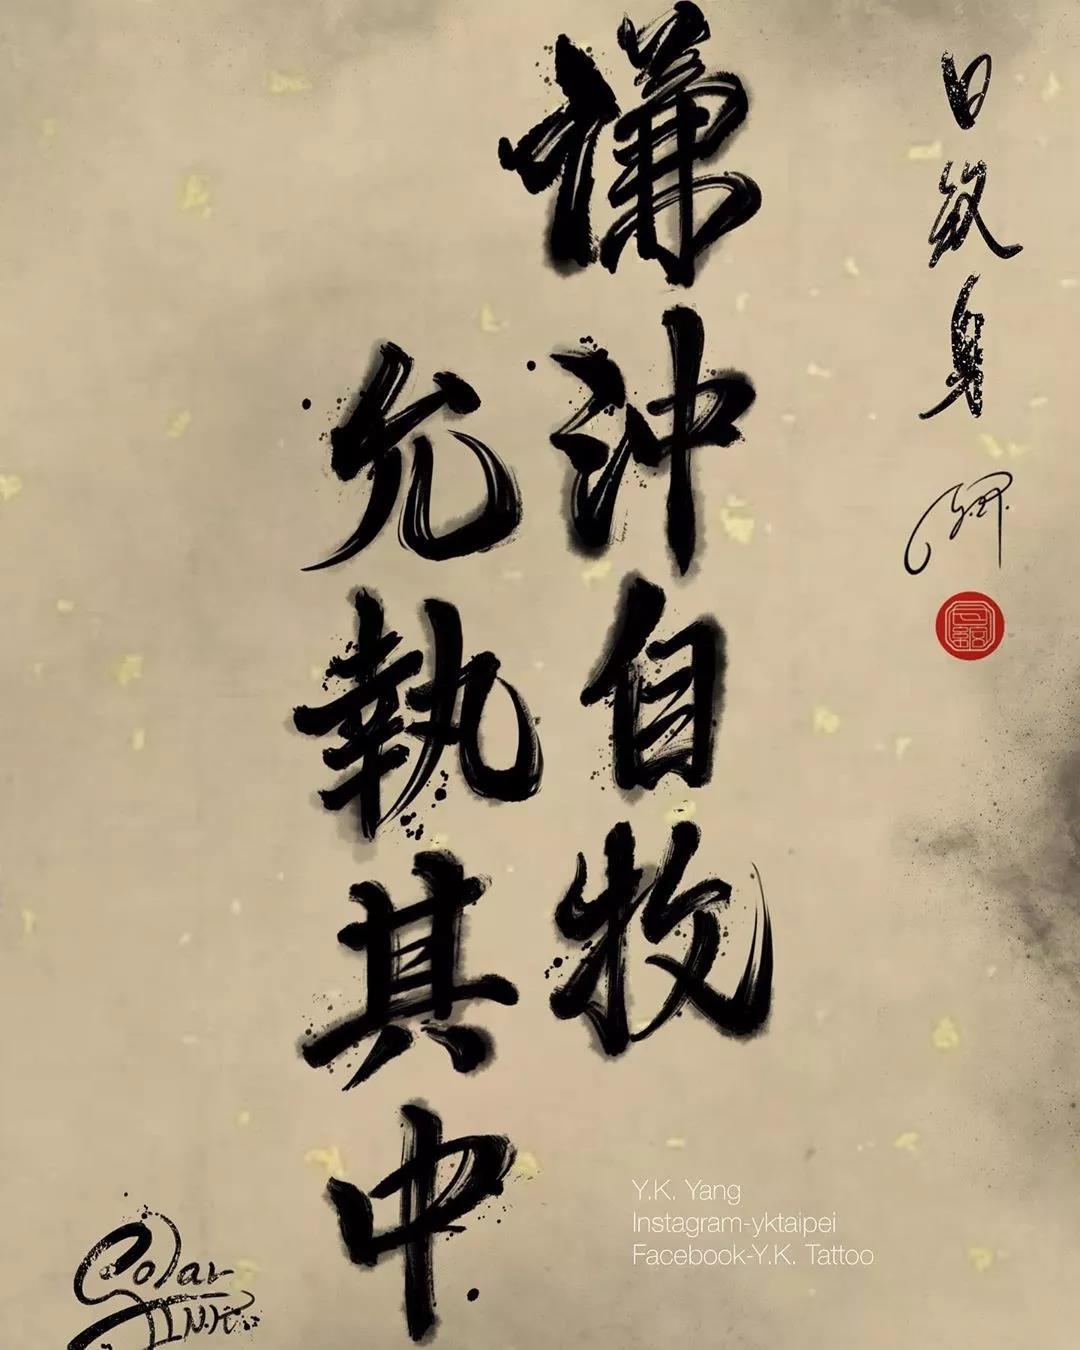 謙沖自牧
允執其中
日紋身
Y.K. Yang
Instagram-yktaipei
Facebook-Y.K. Tattoo
Solar
INK